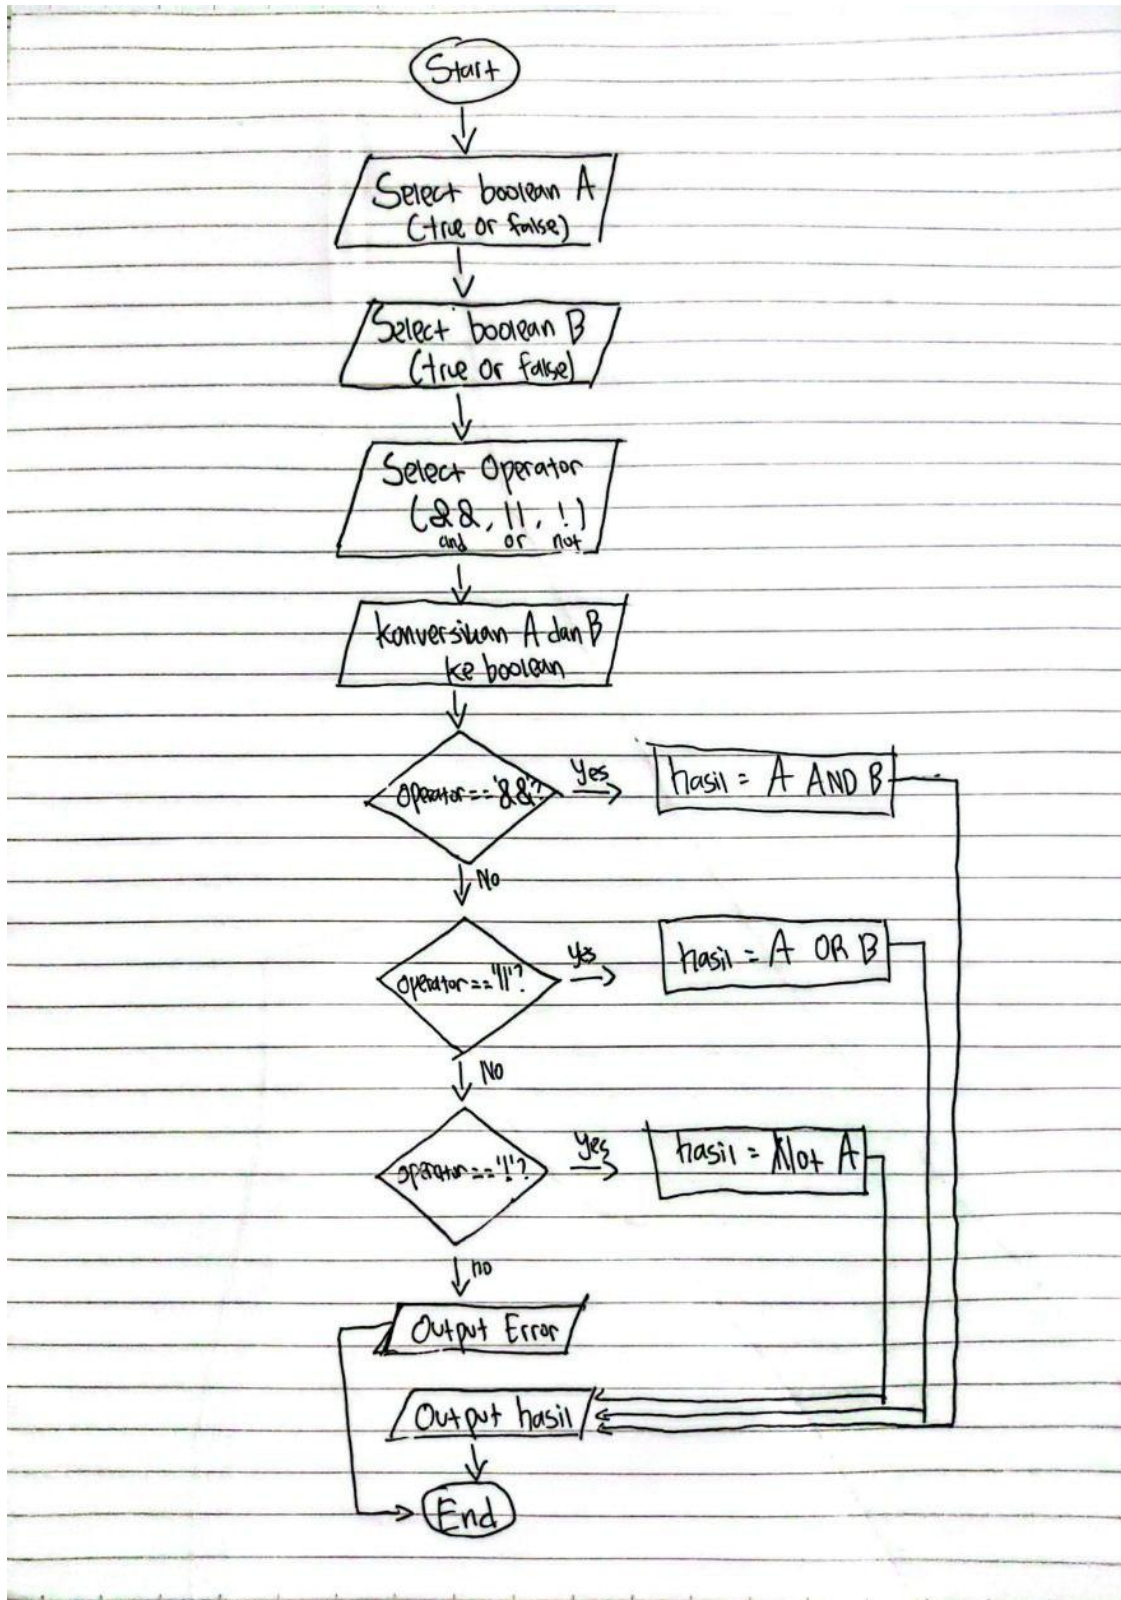 Start
Select boolean A
(true or false)
Select boolean B
(true or false)
Select Operator
(&&, ||, !)
and or not
konversikan A dan B
ke boolean
operator == '&&'?
Yes
hasil = A AND B
No
operator == '||'?
Yes
hasil = A OR B
No
operator == '!'?
Yes
hasil = Not A
no
Output Error
Output hasil
End